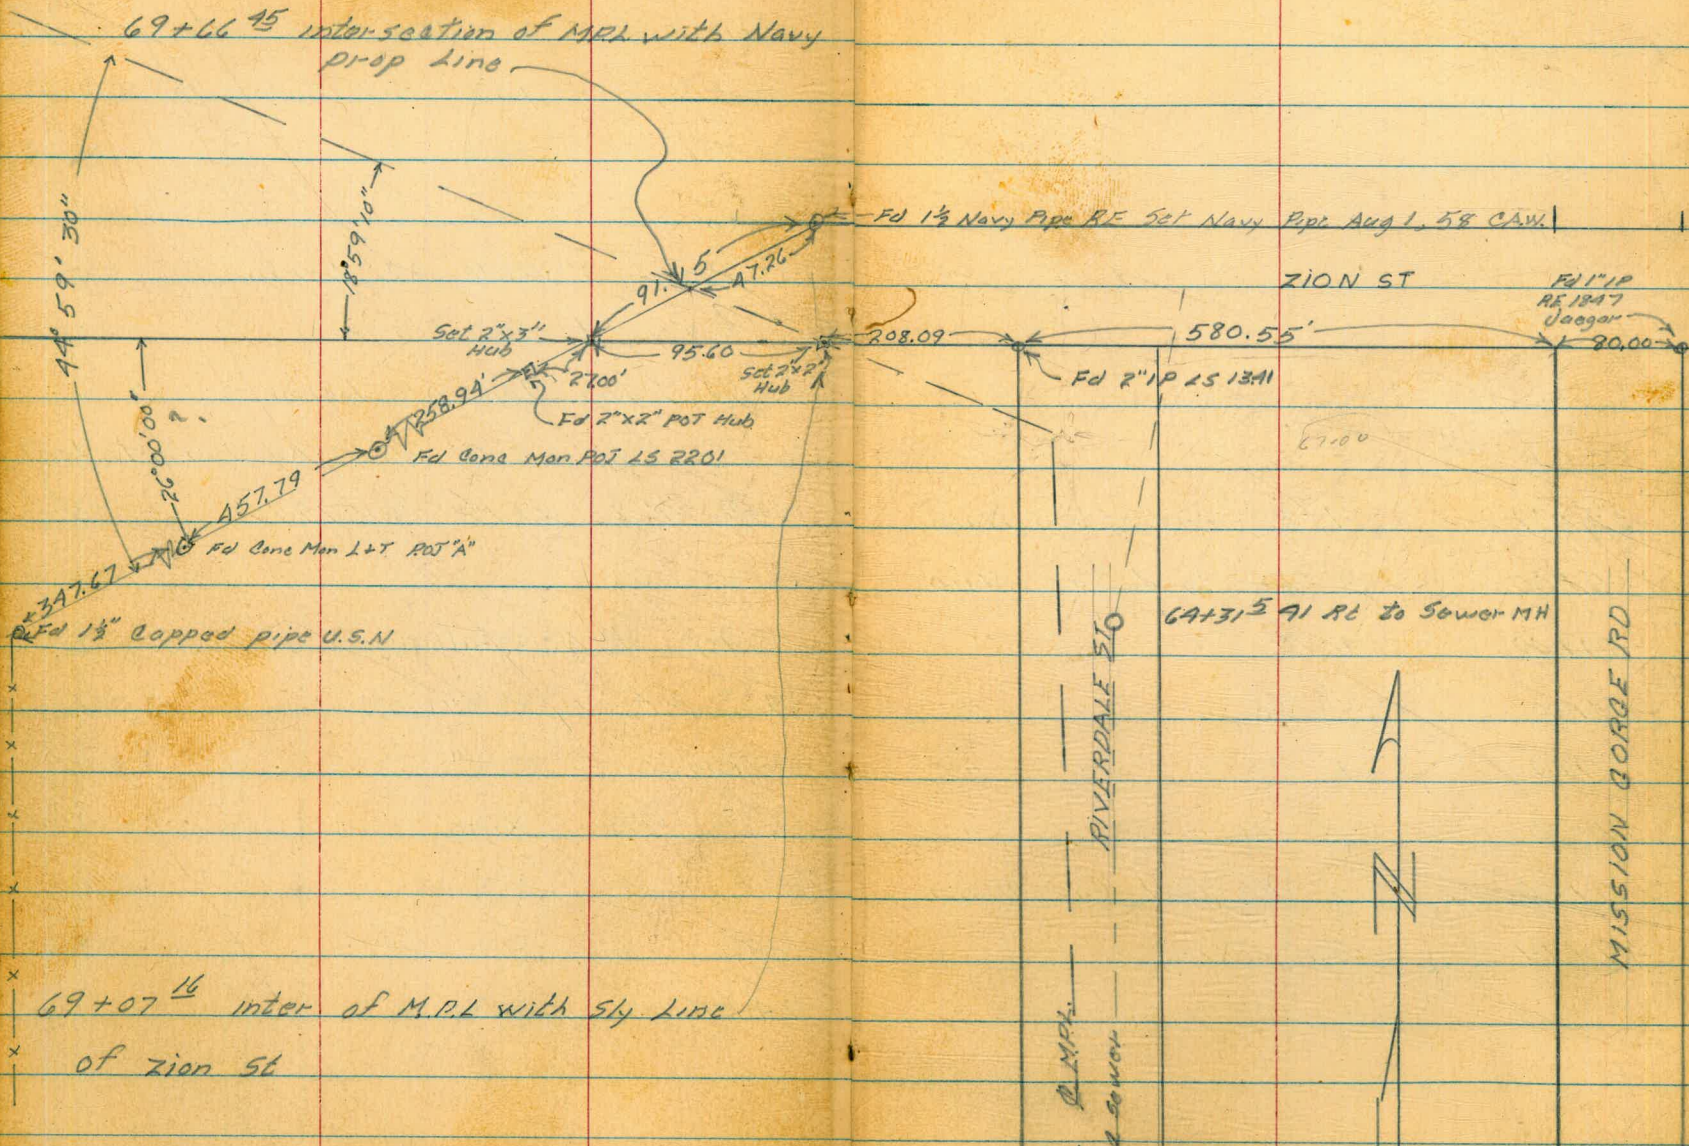 69+66 45 intersection of MPL with Navy
prop Line
44° 59' 30"
18°59'10"
Fd 1½ Navy Pipe RE Set Navy Pipe Aug 1, 58 C.A.W.
91.5
47.26
ZION ST
Fd 1" IP
RE 1847
Jaegar
Set 2"x3"
Hub
95.60
208.09
580.55'
80.00
27.00'
Set 2"x2"
Hub
Fd 2" IP LS 1341
258.94'
Fd 2"x2" POT Hub
26°00'00"
?
Fd Conc Mon POT LS 2201
67.00
457.79
Fd Conc Mon L&T POT "A"
347.67
Fd 1½" Capped pipe U.S.N
64+31 5 41 Rt to Sewer MH
RIVERDALE ST
MISSION GORGE RD
N
69+07 16 inter of M.P.L with Sly Line
of Zion St
MPL
Sewer